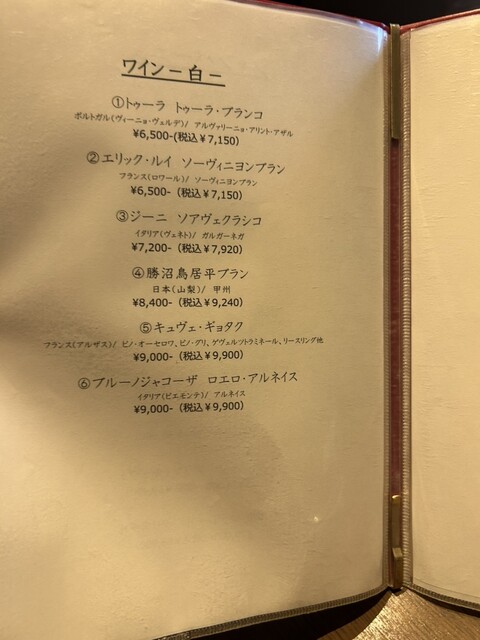 ワイン－白－
①トゥーラ トゥーラ・ブランコ
ポルトガル(ヴィーニョ・ヴェルデ)/ アルヴァリーニョ・アリント・アザル
¥6,500-(税込¥7,150)
②エリック・ルイ ソーヴィニヨンブラン
フランス(ロワール)/ ソーヴィニヨンブラン
¥6,500-（税込¥7,150)
③ジーニ ソアヴェクラシコ
イタリア(ヴェネト)/ ガルガーネガ
¥7,200-（税込¥7,920)
④勝沼鳥居平ブラン
日本(山梨)/ 甲州
¥8,400-（税込¥9,240)
⑤キュヴェ・ギョタク
フランス(アルザス)/ ピノ・オーセロワ、ピノ・グリ、ゲヴェルツトラミネール、リースリング他
¥9,000-（税込¥9,900)
⑥ブルーノジャコーザ ロエロ・アルネイス
イタリア(ピエモンテ)/ アルネイス
¥9,000-（税込¥9,900)